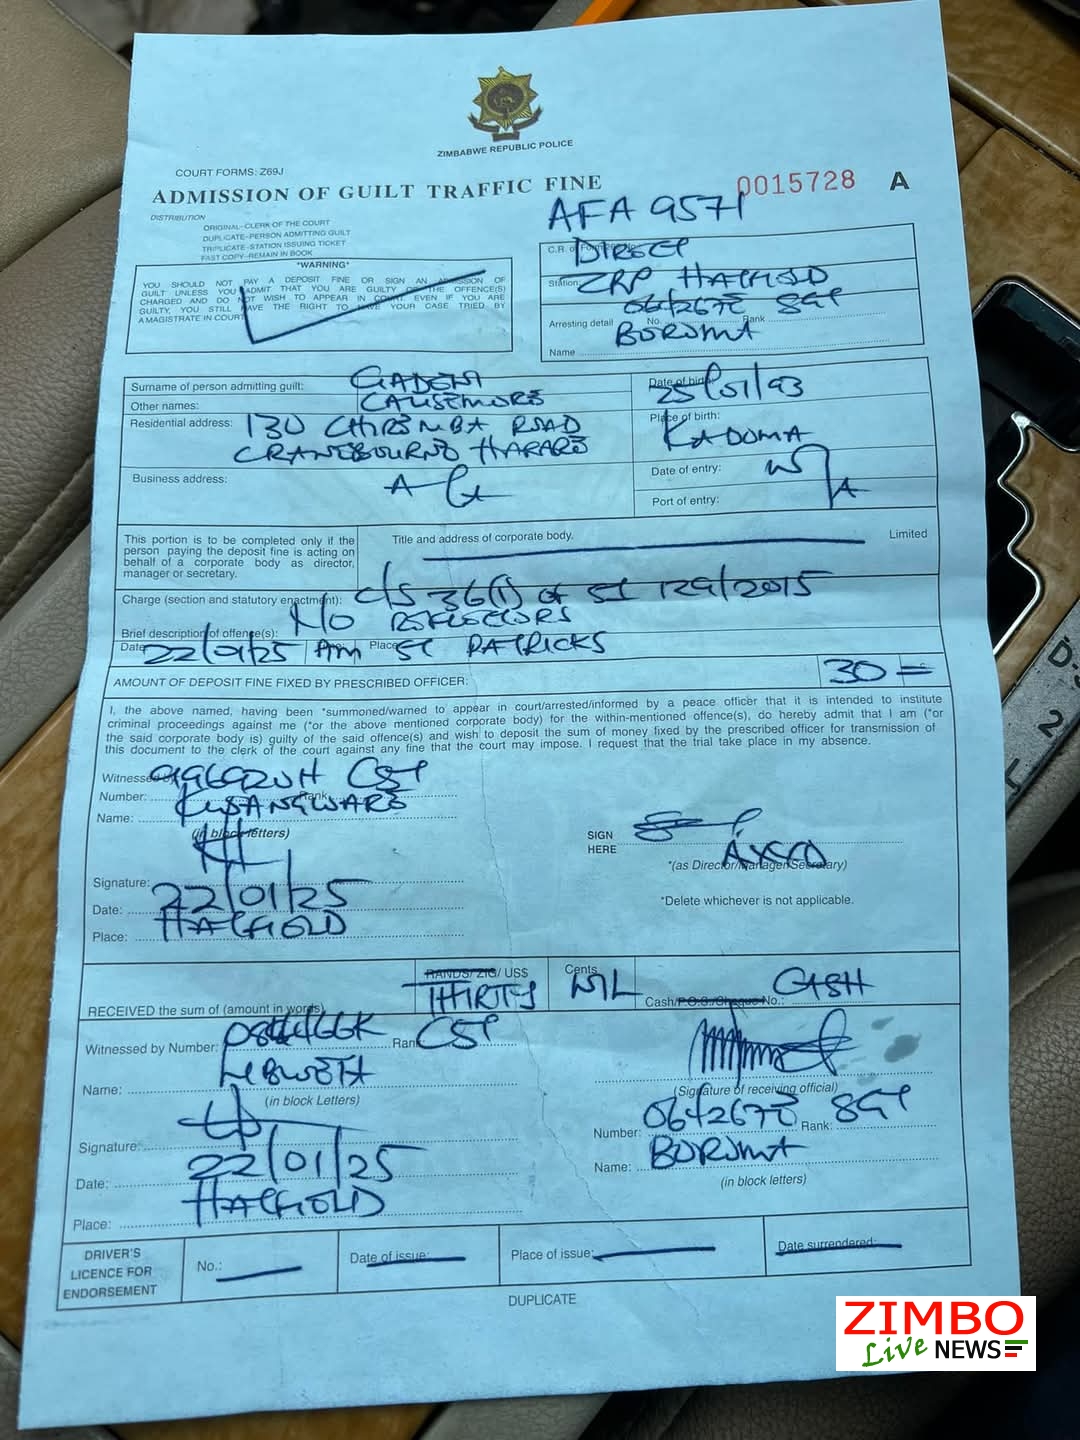 ZIMBABWE REPUBLIC POLICE
COURT FORMS: Z69J
ADMISSION OF GUILT TRAFFIC FINE
0015728 A
AFA 9571
DISTRIBUTION
ORIGINAL-CLERK OF THE COURT
DUPLICATE-PERSON ADMITTING GUILT
TRIPLICATE-STATION ISSUING TICKET
FAST COPY-REMAIN IN BOOK
*WARNING*
YOU SHOULD NOT PAY A DEPOSIT FINE OR SIGN AN ADMISSION OF
GUILT UNLESS YOU ADMIT THAT YOU ARE GUILTY OF THE OFFENCE(S)
CHARGED AND DO NOT WISH TO APPEAR IN COURT. EVEN IF YOU ARE
GUILTY, YOU STILL HAVE THE RIGHT TO HAVE YOUR CASE TRIED BY
A MAGISTRATE IN COURT
C.R. or DIRECT
Station: ZRP HATFIELD
Arresting detail No. Rank SGT
Name BOROMA
Surname of person admitting guilt:
Other names:
Residential address: 130 CHIREMBA ROAD
CRANEBOURNE HARARE
Business address:
Date of birth: 25/01/93
Place of birth: KADOMA
Date of entry: N/A
Port of entry:
This portion is to be completed only if the
person paying the deposit fine is acting on
behalf of a corporate body as director,
manager or secretary.
Title and address of corporate body.
Limited
Charge (section and statutory enactment): C/S 36(1) of SI 129/2015
Brief description of offence(s): NO REFLECTORS
Date 22/01/25 Am Place ST PATRICKS
AMOUNT OF DEPOSIT FINE FIXED BY PRESCRIBED OFFICER: 30 =
I, the above named, having been *summoned/warned to appear in court/arrested/informed by a peace officer that it is intended to institute
criminal proceedings against me (*or the above mentioned corporate body) for the within-mentioned offence(s), do hereby admit that I am (*or
the said corporate body is) guilty of the said offence(s) and wish to deposit the sum of money fixed by the prescribed officer for transmission of
this document to the clerk of the court against any fine that the court may impose. I request that the trial take place in my absence.
Witnessed by
Number: Rank CST
Name: KUSANGWARE
(in block letters)
SIGN
HERE
*(as Director/Manager/Secretary)
Signature:
Date: 22/01/25
Place: HATFIELD
*Delete whichever is not applicable.
RECEIVED the sum of (amount in words)
RANDS/ZIG/ US$
THIRTY
Cents
NIL
Cash/P.O.S./Cheque No.: CASH
Witnessed by Number: Rank CST
Name:
(in block Letters)
Signature:
Date: 22/01/25
Place: HATFIELD
(Signature of receiving official)
Number: Rank: SGT
Name: BOROMA
(in block letters)
DRIVER'S
LICENCE FOR
ENDORSEMENT
No.:
Date of issue:
Place of issue:
Date surrendered:
DUPLICATE
ZIMBO
Live NEWS